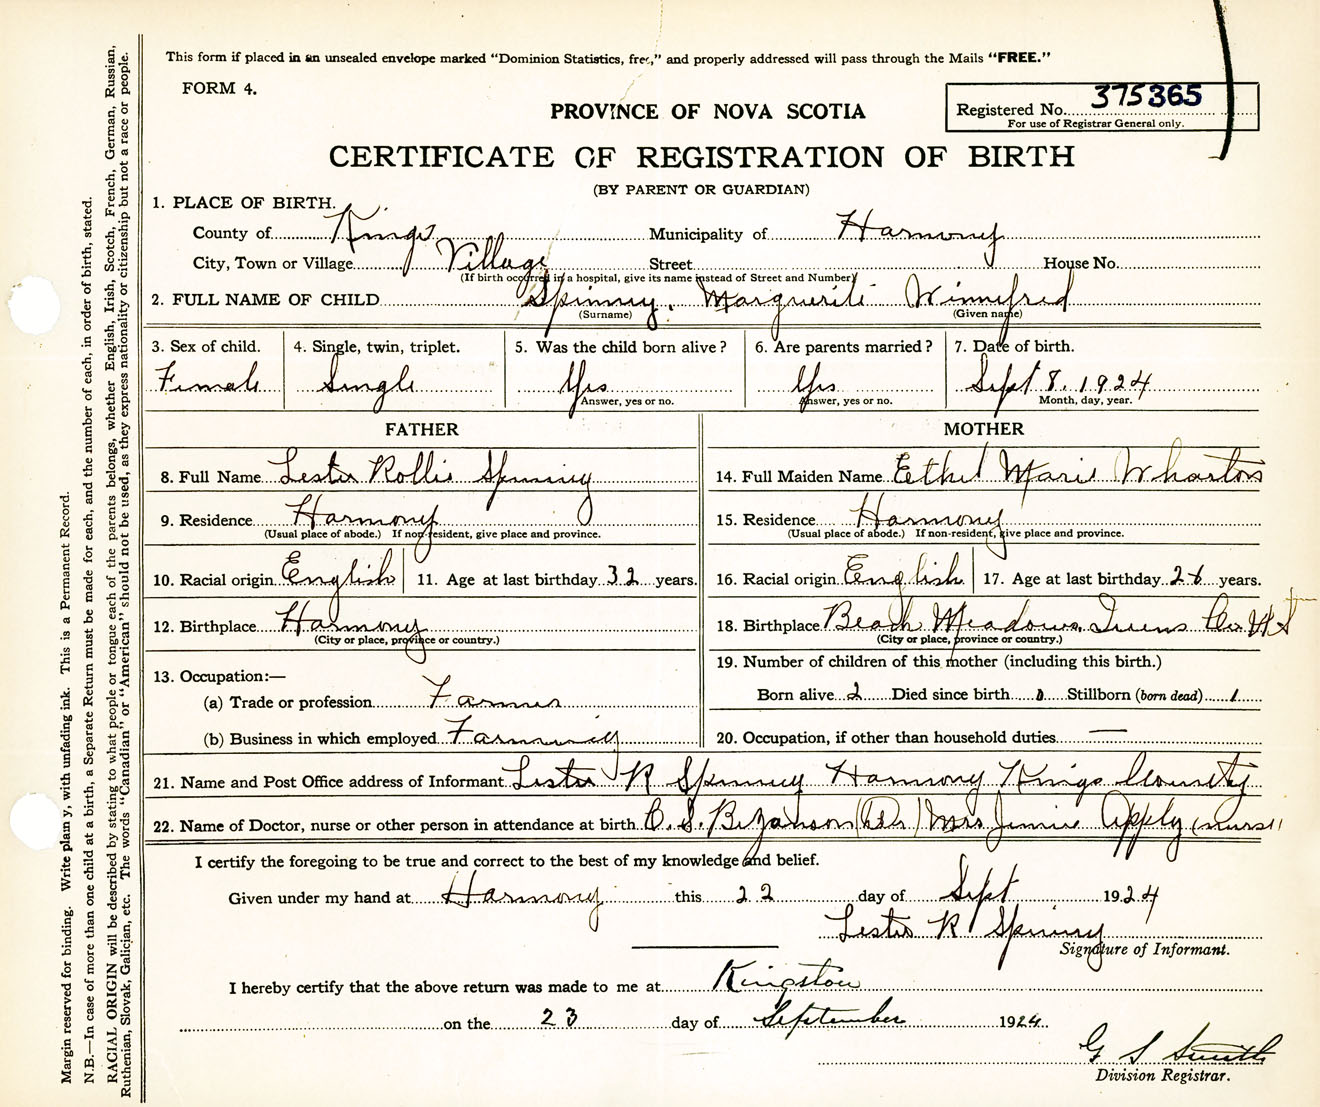 This form if placed in an unsealed envelope marked "Dominion Statistics, free," and properly addressed will pass through the Mails "FREE."
FORM 4.
Registered No. 375365
For use of Registrar General only.
PROVINCE OF NOVA SCOTIA
CERTIFICATE OF REGISTRATION OF BIRTH
(BY PARENT OR GUARDIAN)
1. PLACE OF BIRTH.
County of Kings Municipality of Harmony
City, Town or Village Village Street House No.
(If birth occurred in a hospital, give its name instead of Street and Number)
2. FULL NAME OF CHILD Spinney, Marguerite Winnifred
(Surname) (Given name)
3. Sex of child. 4. Single, twin, triplet. 5. Was the child born alive? 6. Are parents married? 7. Date of birth.
Female Single Yes Yes Sept 8. 1924
Answer, yes or no. Answer, yes or no. Month, day, year.
FATHER
8. Full Name Lester Rollie Spinney
9. Residence Harmony
(Usual place of abode.) If non-resident, give place and province.
10. Racial origin English 11. Age at last birthday 32 years.
12. Birthplace Harmony
(City or place, province or country.)
13. Occupation:—
(a) Trade or profession Farmer
(b) Business in which employed Farming
MOTHER
14. Full Maiden Name Ethel Marie Wharton
15. Residence Harmony
(Usual place of abode.) If non-resident, give place and province.
16. Racial origin English 17. Age at last birthday 26 years.
18. Birthplace Beach Meadows, Queens Co. N S
(City or place, province or country.)
19. Number of children of this mother (including this birth.)
Born alive 2 Died since birth Stillborn (born dead) 1
20. Occupation, if other than household duties —
21. Name and Post Office address of Informant Lester R Spinney Harmony Kings County
22. Name of Doctor, nurse or other person in attendance at birth O. S. Bezanson (Dr) Mrs Jennie Apply (nurse)
I certify the foregoing to be true and correct to the best of my knowledge and belief.
Given under my hand at Harmony this 22 day of Sept 1924
Lester R Spinney
Signature of Informant.
I hereby certify that the above return was made to me at Kingston
on the 23 day of September 1924
G S Smith
Division Registrar.
Margin reserved for binding. Write plainly, with unfading ink. This is a Permanent Record.
N.B.—In case of more than one child at a birth, a Separate Return must be made for each, and the number of each, in order of birth, stated.
RACIAL ORIGIN will be described by stating to what people or tongue each of the parents belongs, whether English, Irish, Scotch, French, German, Russian,
Ruthenian, Slovak, Galician, etc. The words "Canadian" or "American" should not be used, as they express nationality or citizenship but not a race or people.